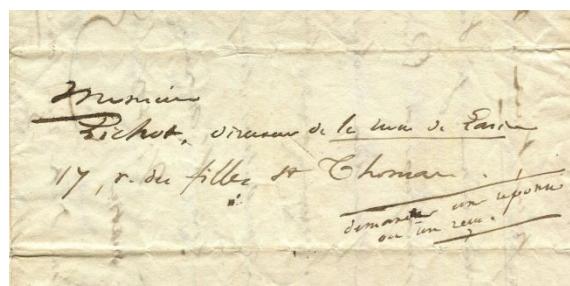 Monsieur
Pichot, directeur de la revue de Paris
17, r. des filles St Thomas.
demander une réponse
ou un reçu.